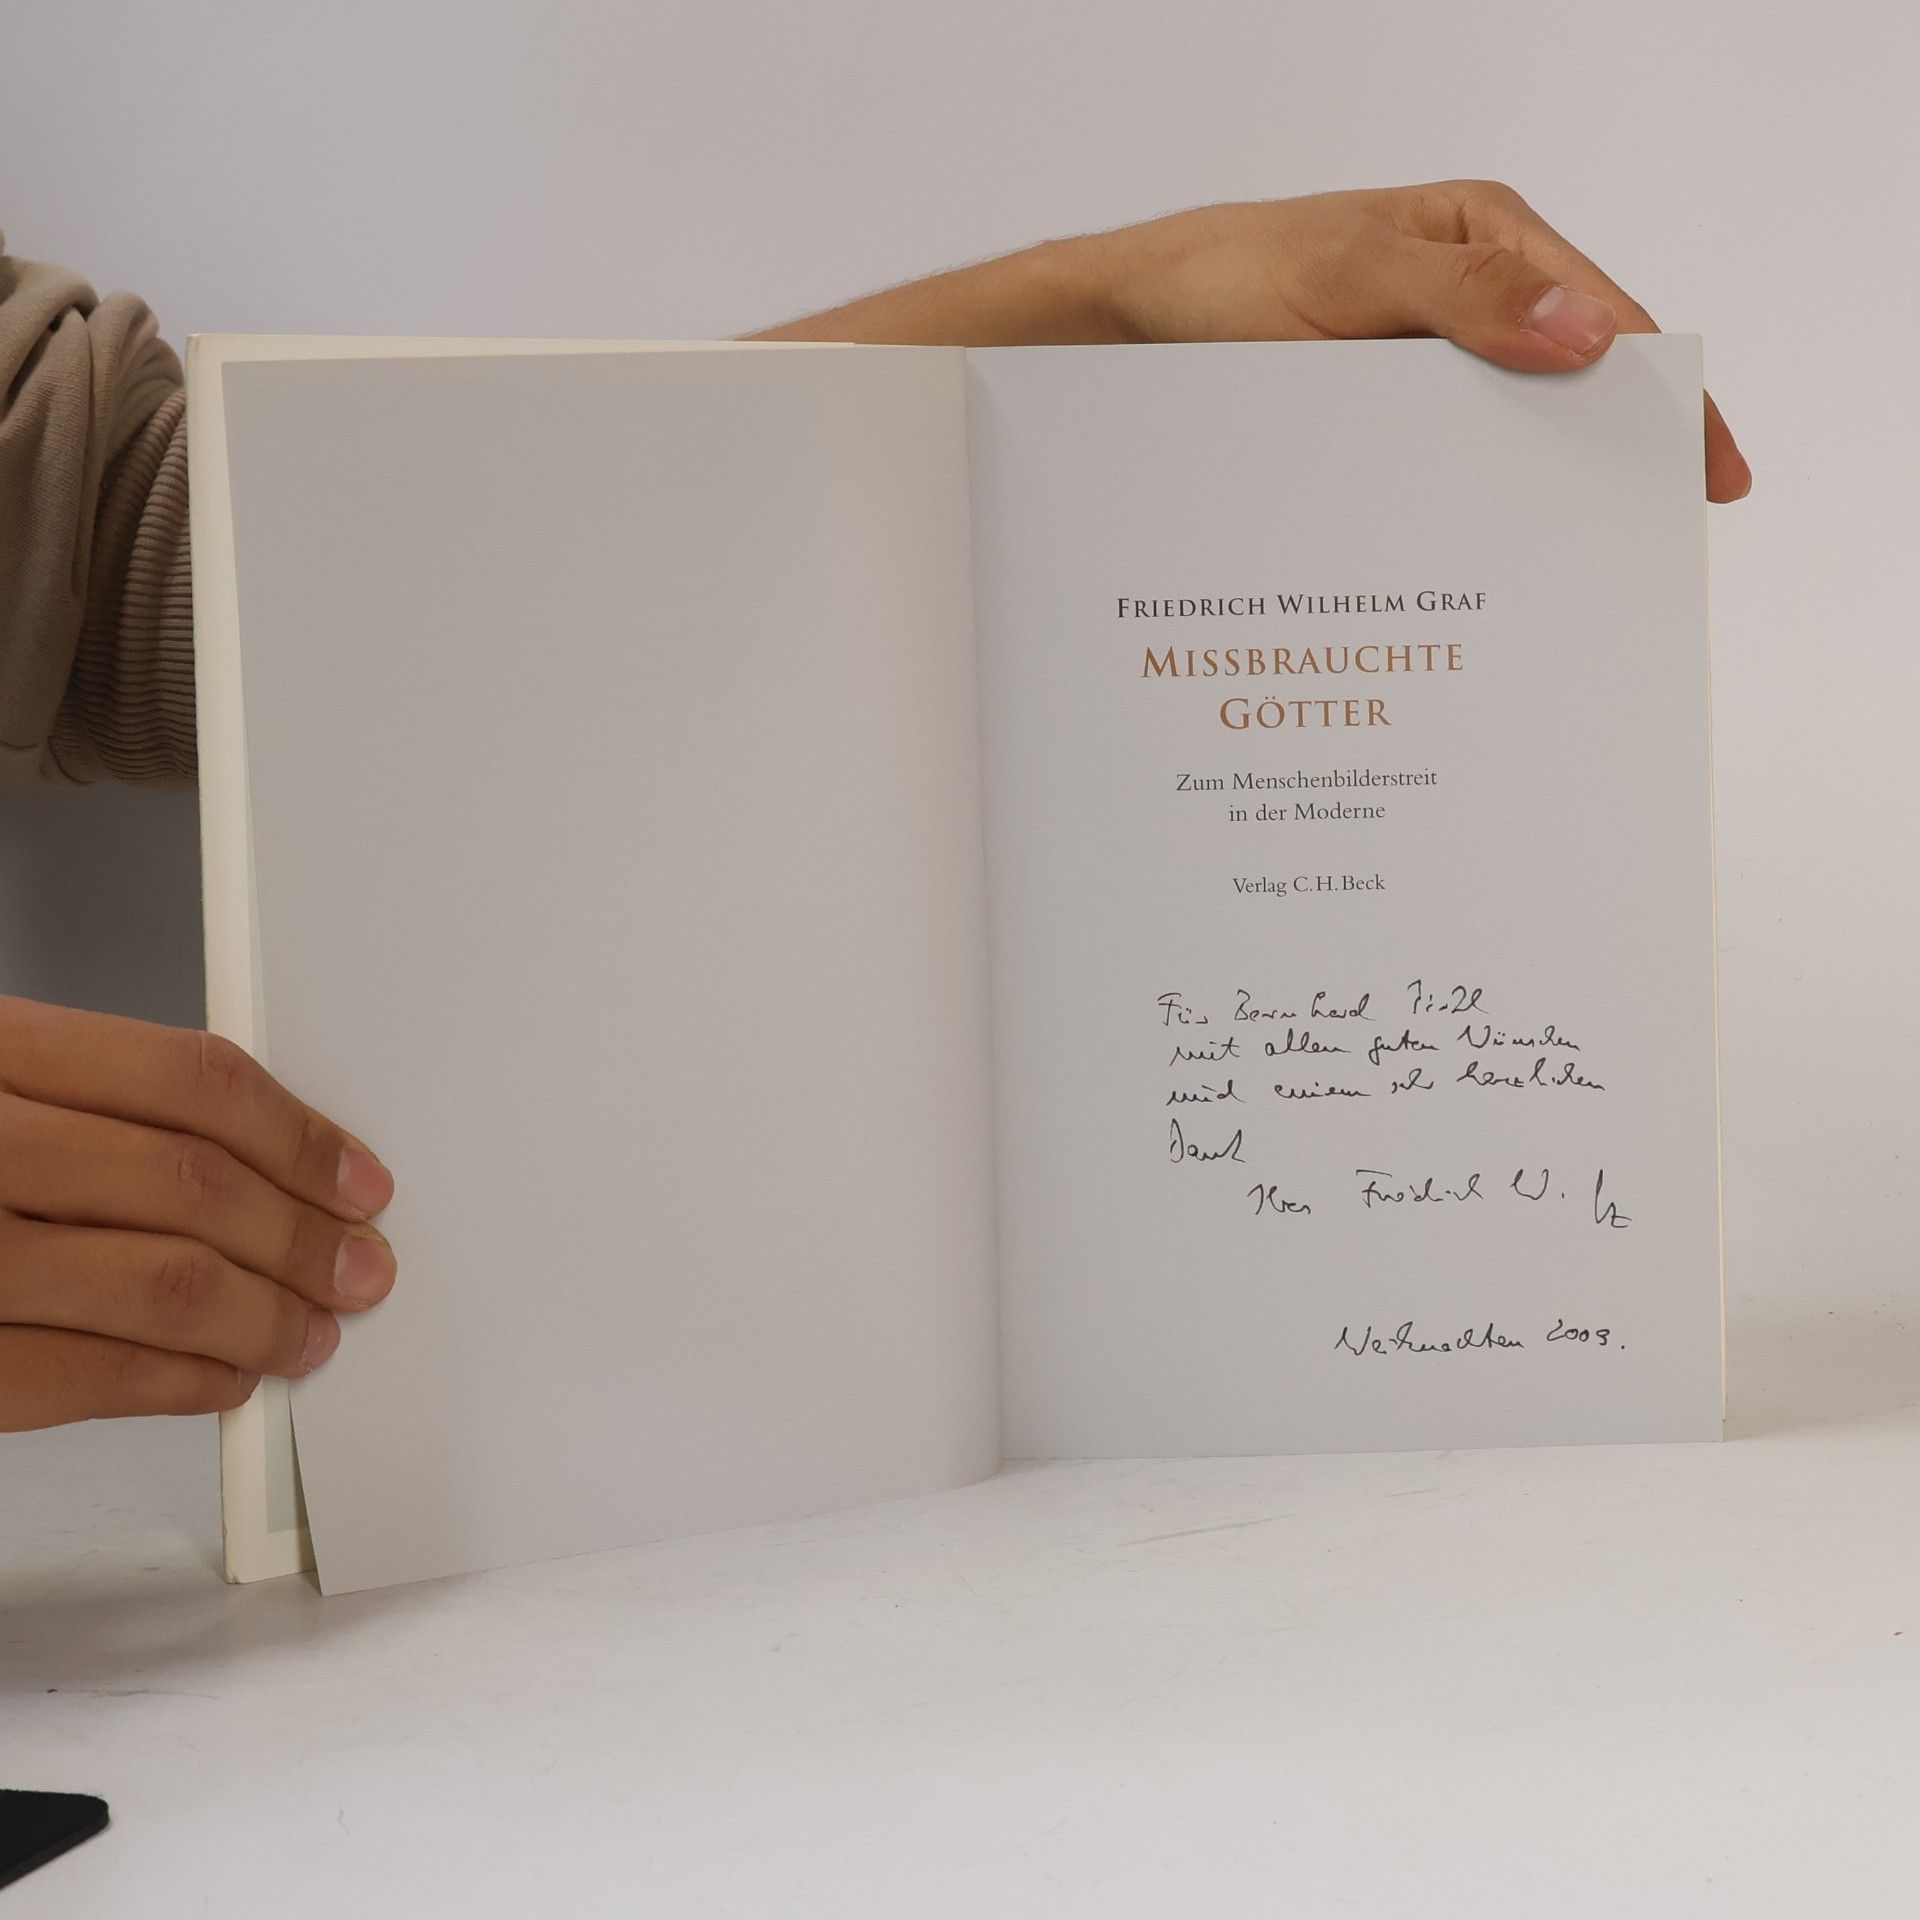 FRIEDRICH WILHELM GRAF
MISSBRAUCHTE
GÖTTER
Zum Menschenbilderstreit
in der Moderne
Verlag C.H.Beck
Für Bernhard
mit allen guten Wünschen
und einem sehr herzlichen
Dank
Ihr Friedrich W.
Weihnachten 2009.